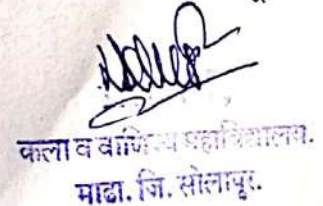 कला व वाणिज्य महाविद्यालय.
माढा. जि. सोलापूर.